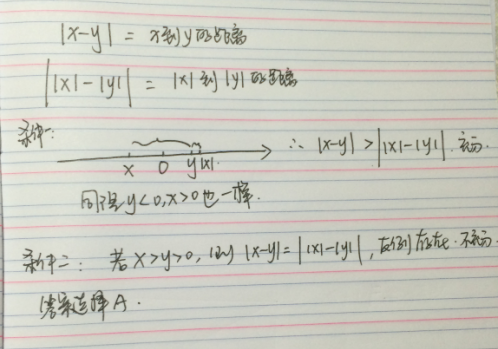 |x-y| = x到y的距离
||x|-|y|| = |x|到|y|的距离
条件一:
x 0 y |x|
∴ |x-y| > ||x|-|y||. 充分.
同理y<0,x>0也一样.
条件二: 若x>y>0, 则 |x-y|=||x|-|y||, 反例存在. 不充分
答案选择A.